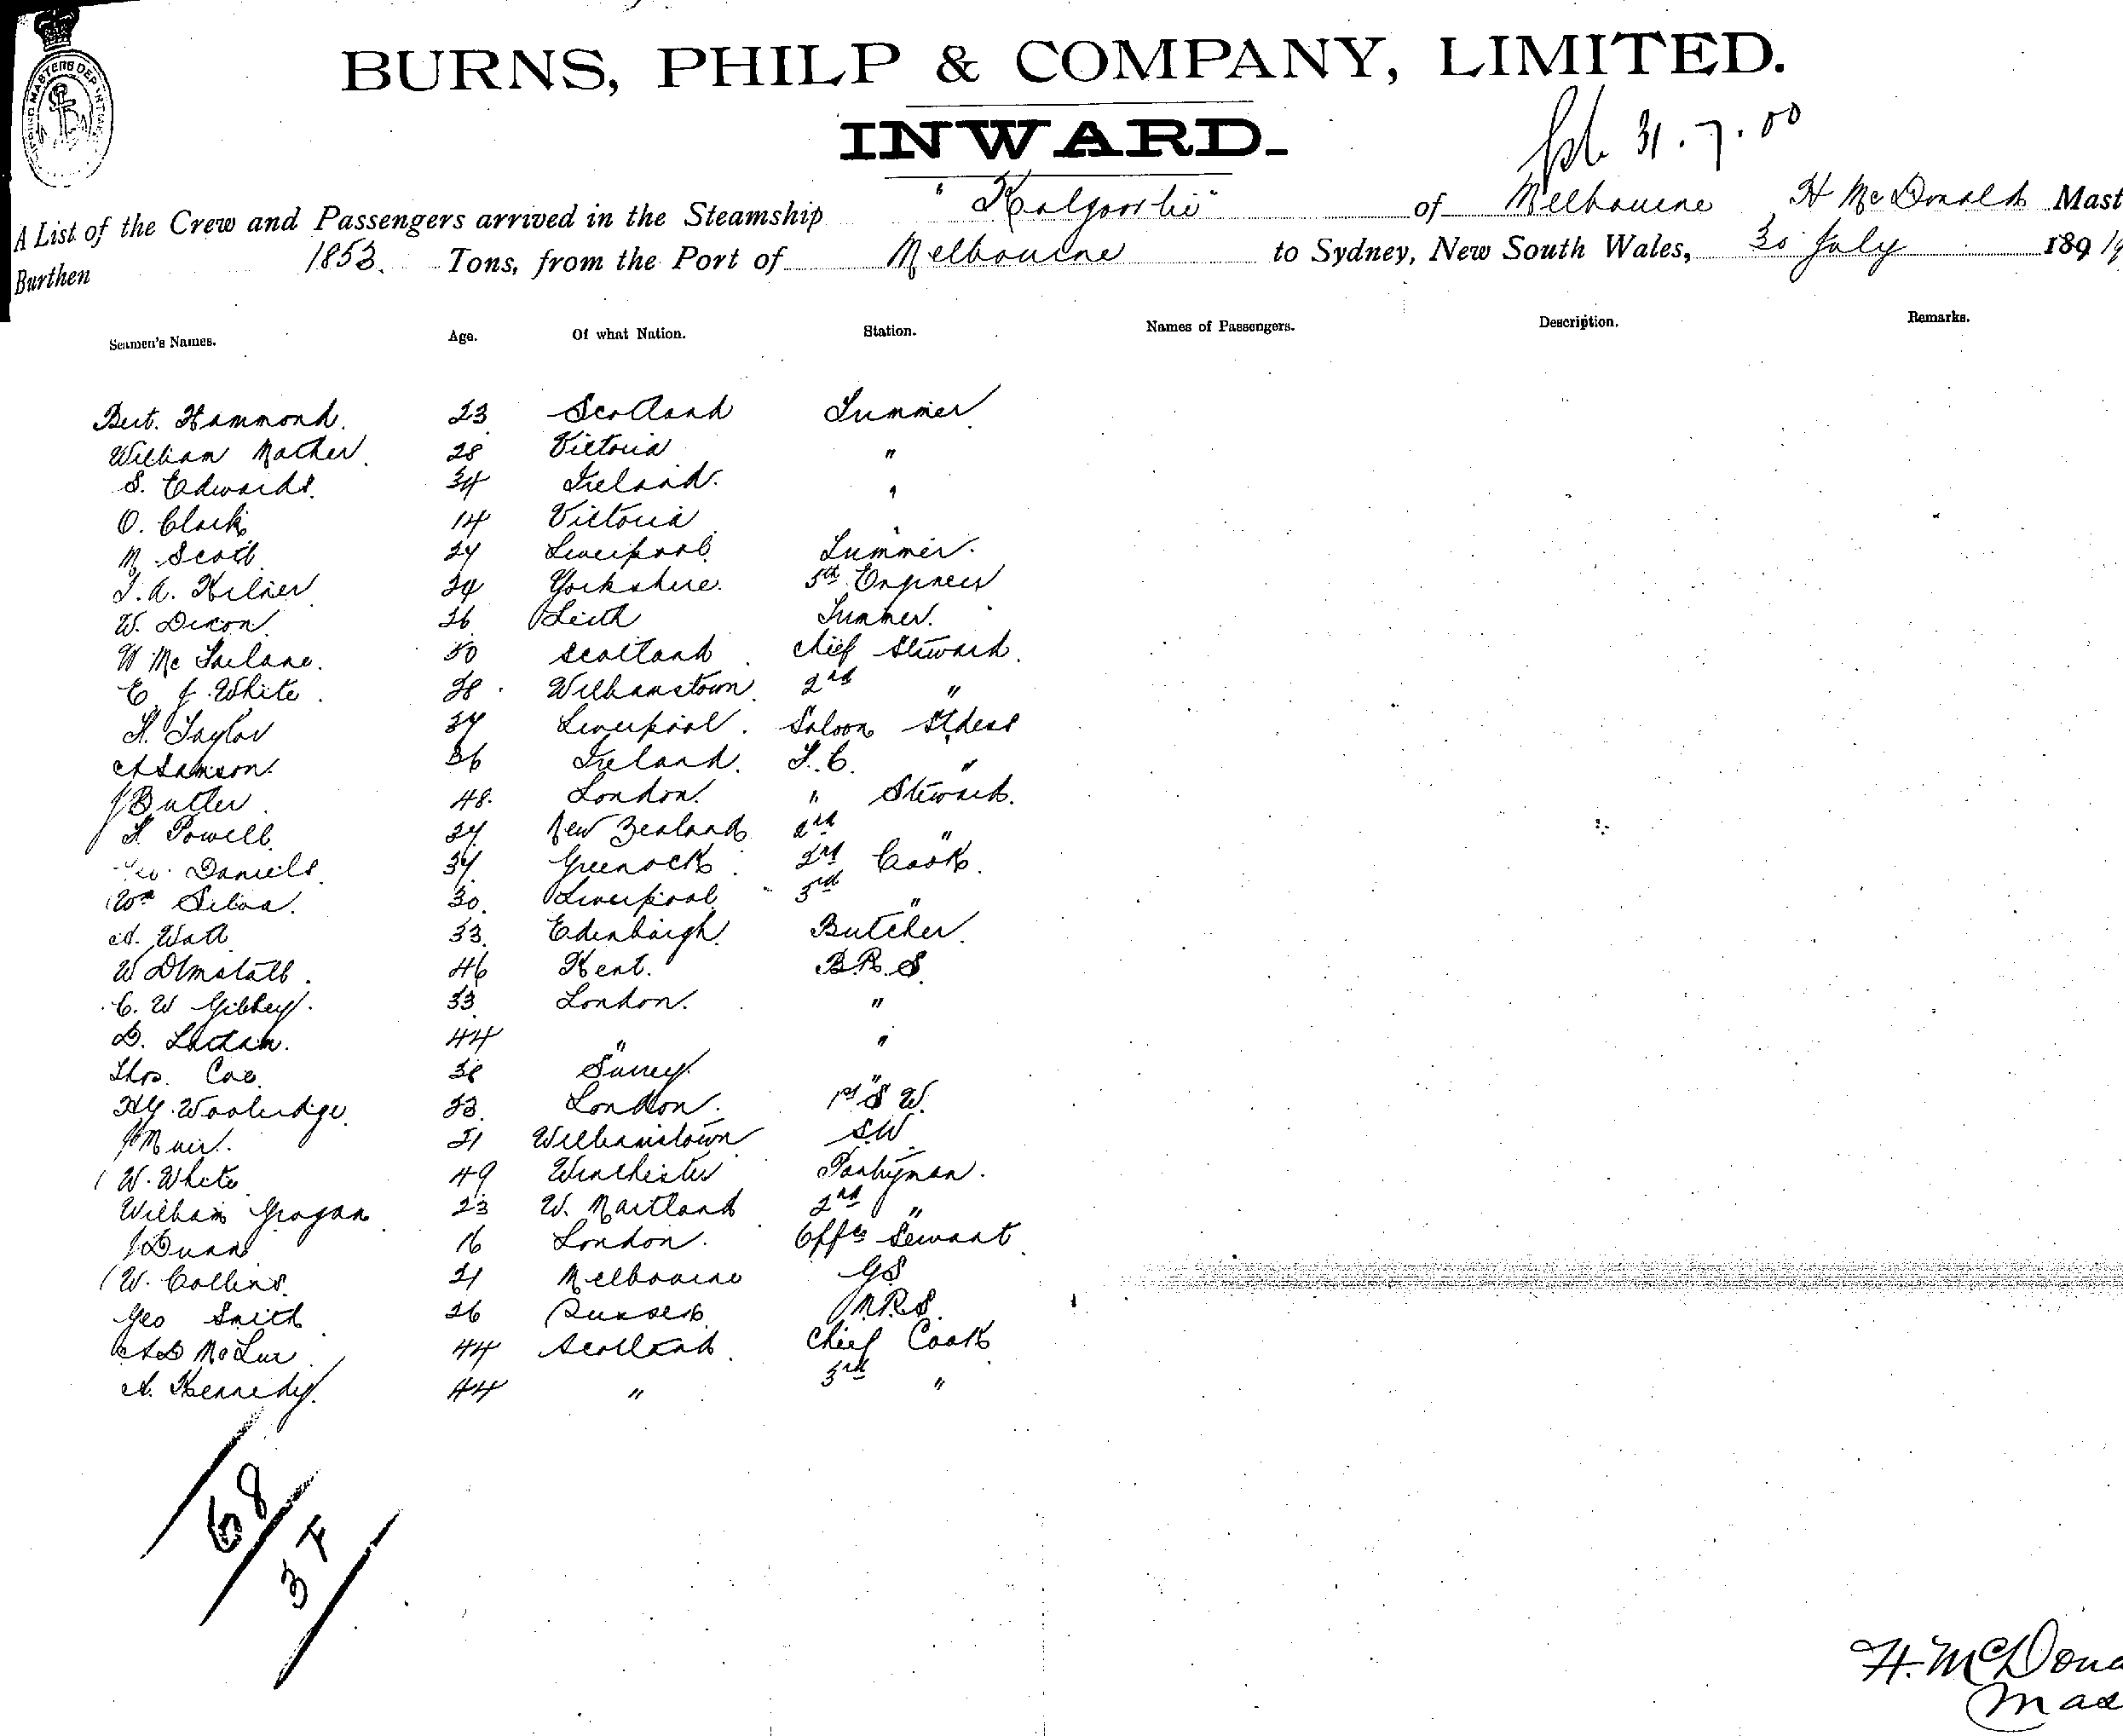 SHIPPING MASTERS DEPARTMENT
BURNS, PHILP & COMPANY, LIMITED.
INWARD.
31.7.00
A List of the Crew and Passengers arrived in the Steamship "Kalgoorlie" of Melbourne, H McDonald Mast
Burthen 1853 Tons, from the Port of Melbourne to Sydney, New South Wales, 30 July 189
Seamen's Names. Age. Of what Nation. Station. Names of Passengers. Description. Remarks.
Bert. Hammond. 23 Scotland Trimmer
William Mather. 28 Victoria "
S. Edwards. 34 Ireland. "
O. Clark 14 Victoria "
M Scott 24 Liverpool Trimmer.
T. A. Kilner 24 Yorkshire. 5th Engineer
W. Dixon 26 Leith Trimmer.
W McFarlane. 50 Scotland Chief Steward.
E. J. White. 28. Williamstown. 2nd "
Taylor 34 Liverpool. Saloon Stdess
A Samson. 36 Ireland. F.C. "
J Butler. 48. London. " Steward.
Powell. 24. New Zealand 2nd "
Geo. Daniels. 34. Greenock. 2nd Cook.
Wm Silva. 30. Liverpool 3rd "
A. Watt 33. Edinburgh. Butcher.
W 46 Kent. B.R.S.
C. W Gibbey. 33 London. "
D. 44 " "
Thos. Coe. 38 Surrey. "
Hy. Wooleridge. 23. London. 1st S W.
J Muir. 21 Williamstown S.W
W. White 49 Winchester Pantryman.
William Grogan 23 W. Maitland 2nd "
J Dunn 16 London. Offrs Servant
W. Collins. 21 Melbourne G S
Geo Smith 26 Sussex M.R.S.
McLur 44 Scotland. Chief Cook
A. Kennedy. 44 " 3rd "
68
3 F
H. McDona
Mas